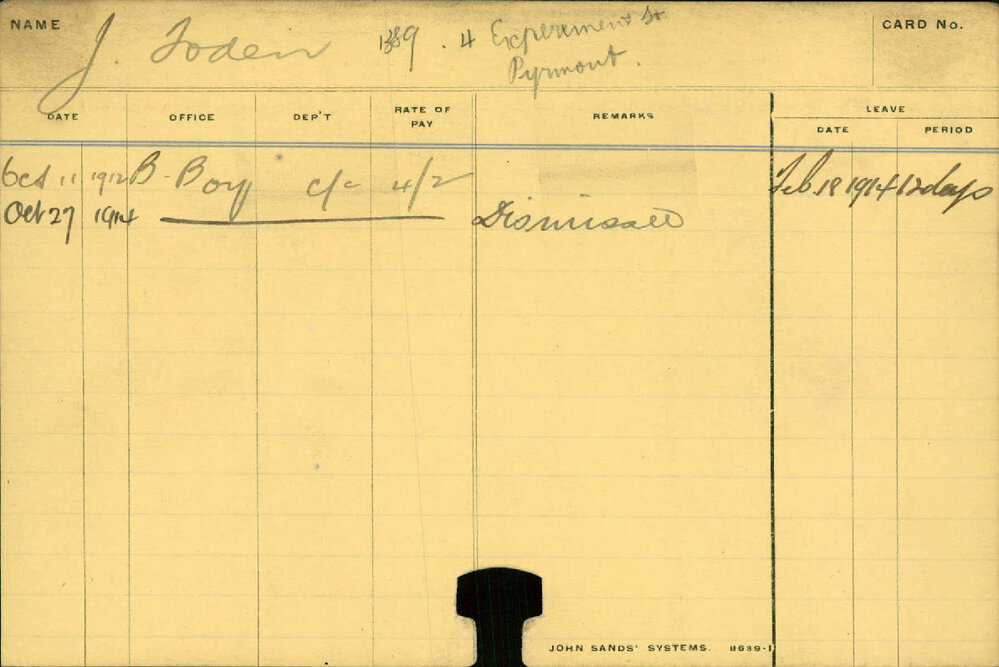 NAME J. Foden 1389. 4 Experiment St CARD No.
Pyrmont.
DATE OFFICE DEP'T RATE OF PAY REMARKS LEAVE
DATE PERIOD
Oct 11 1912 B. Boy c/- 4/2 Feb. 18 1914 12 days
Oct 27 1914 Dismissed
JOHN SANDS' SYSTEMS. 8639-1